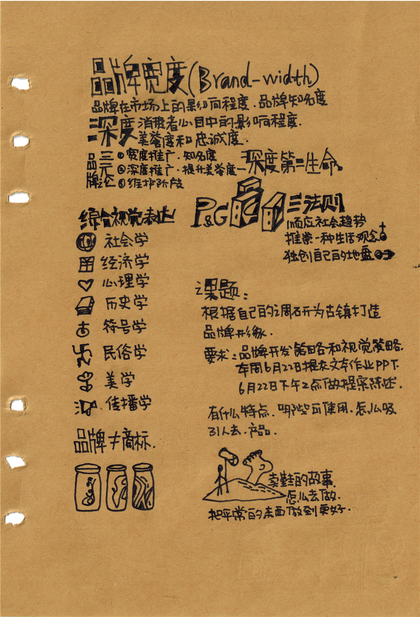 品牌宽度(Brand-width)
品牌在市场上的影响程度.品牌知名度
深度 消费者心目中的影响程度.
美誉度和忠诚度.
品牌三元论
①宽度推广.知名度
②深度推广.提升美誉度—深度第二生命.
③维护阶段
综合视觉表达
社会学
经济学
心理学
历史学
符号学
民俗学
美学
传播学
品牌≠商标.
P&G 三法则
1顺应社会趋势
推崇一种生活观念
独创自己的地盘
课题:
根据自己的调研为古镇打造
品牌形象.
要求:品牌开发策略和视觉策略.
本周6月21日提交文本作业PPT.
6月22日下午2点做提案陈述.
有什么特点.哪些可使用.怎么吸
引人去.产品.
的故事.
怎么去做.
把平常的东西做到更好.